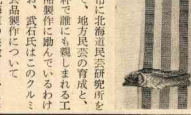 市に北海道民芸研究所を
、地方民芸の育成と、
料で誰にも親しまれる工
品製作に励んでいるわけ
、武石氏はこのクルミ
芸品製作について